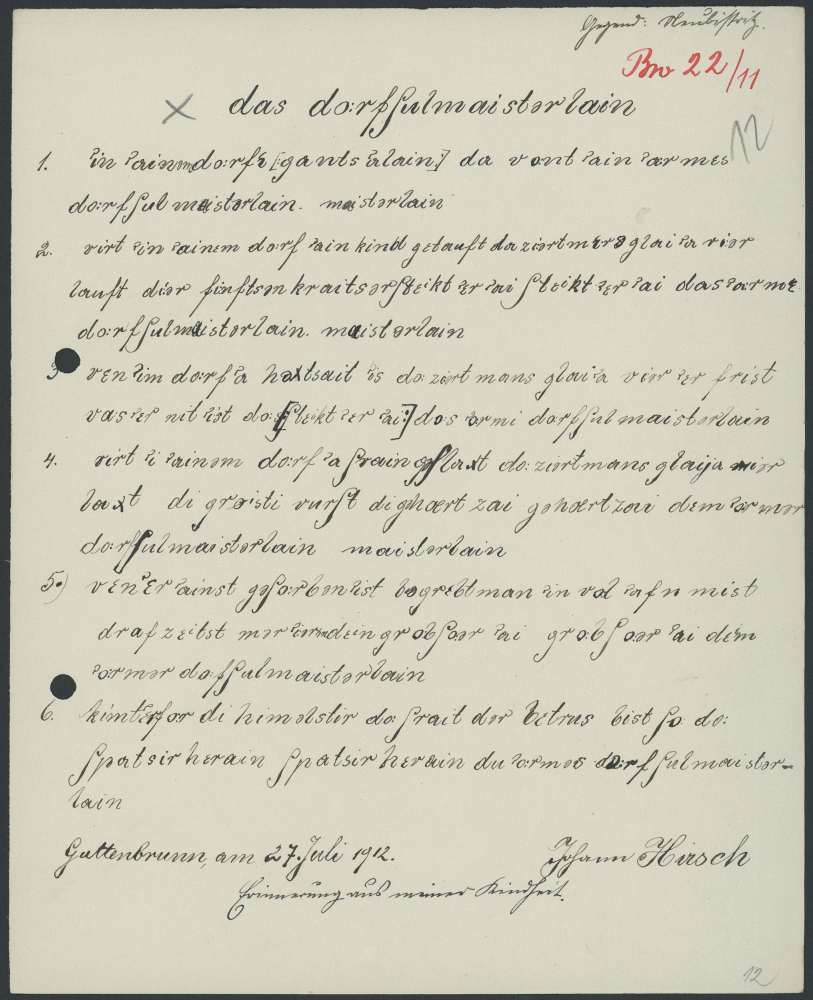 Gegend: Neubistritz.
Bro 22/11
12
das do:rfʃulmaistərlain
1. ʾin ʾainəmdo:rfʾe [:gants ʾalain:] da vont ʾain ʾarmes
do:rfʃulmaistərlain. maistərlain
2. virt ʾin ʾainem do:rf ʾain kind getauft da ziərt mərs glai ʾa viər
lauft diər finftsən kraitsərʃtɛikt ʾɛr ʾai ʃtɛikt ʾɛr ʾai das ʾarmɛ
do:rfʃulmaistərlain. maistərlain
3 vɛn ʾim dorf ʾa hoxtsait ʾis do: ziərt mans glai ʾa viər ʾɛr frist
vas ʾɛr nit ʾist do: [:ʃtɛkt ʾɛr ʾai:] dos ʾarmi dorfʃulmaistərlain
4. virt ʾi ʾainəm do:rf ʾa ʃvain gʃlaxt do: ziərtmans glaija viər
laxt di grœsti vurʃt di ghœrt zai gəhœrt zai dem ʾarmər
do:rfʃulmaistərlain maistərlain
5.) vɛn ʾɛr ʾainst gəʃtorbən ʾist bəgrɛbt man ʾin vol ʾafn mist
draf zɛitst mər ʾiərm dein grobʃœr ʾai grobʃœr ʾai dem
ʾarmər dofʃulmaistərlain
6. kimt ʾɛr for di himəlstir do ʃrait dər betrus bist ʃo do:
ʃpatsir herain ʃpatsir herain du ʾarməs do:rfʃulmaistər-
lain
Guttenbrunn, am 27. Juli 1912. Johann Hirsch
Erinnerung aus meiner Kindheit.
12